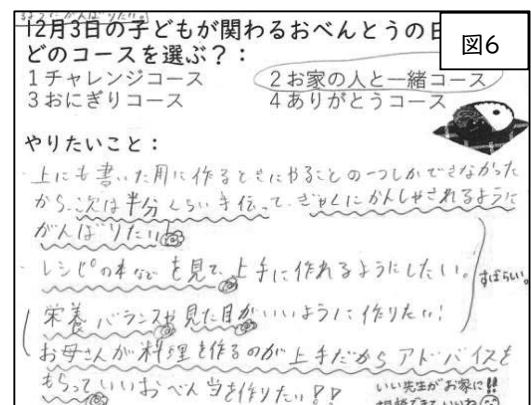 るようにがんばりたい。
12月3日の子どもが関わるおべんとうの日
どのコースを選ぶ?:
図6
1チャレンジコース 2お家の人と一緒コース
3おにぎりコース 4ありがとうコース
やりたいこと:
・上にも書いた用に作るときにやることの一つしかできなかった
から、次は半分くらい手伝って、ぎゃくにかんしゃされるように
がんばりたい!
・レシピの本など を見て、上手に作れるようにしたい。
栄養バランスや見た目がいいように作りたい!
お母さんが料理を作るのが上手だからアドバイスを
もらっていいおべん当を作りたい!!
すばらしい。
いい先生がお家に!!
相談できていいね